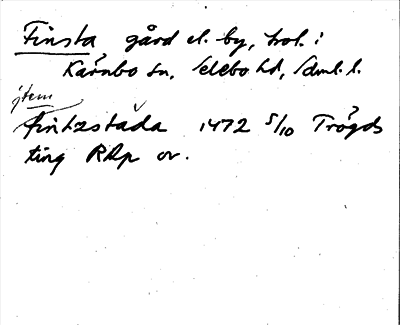 Finsta gård el. by, trol. i
? Kärnbo sn, Selebo hd, Sdml. l.
item
fintzstada 1472 5/10 Trögds ?
ting RAp or.